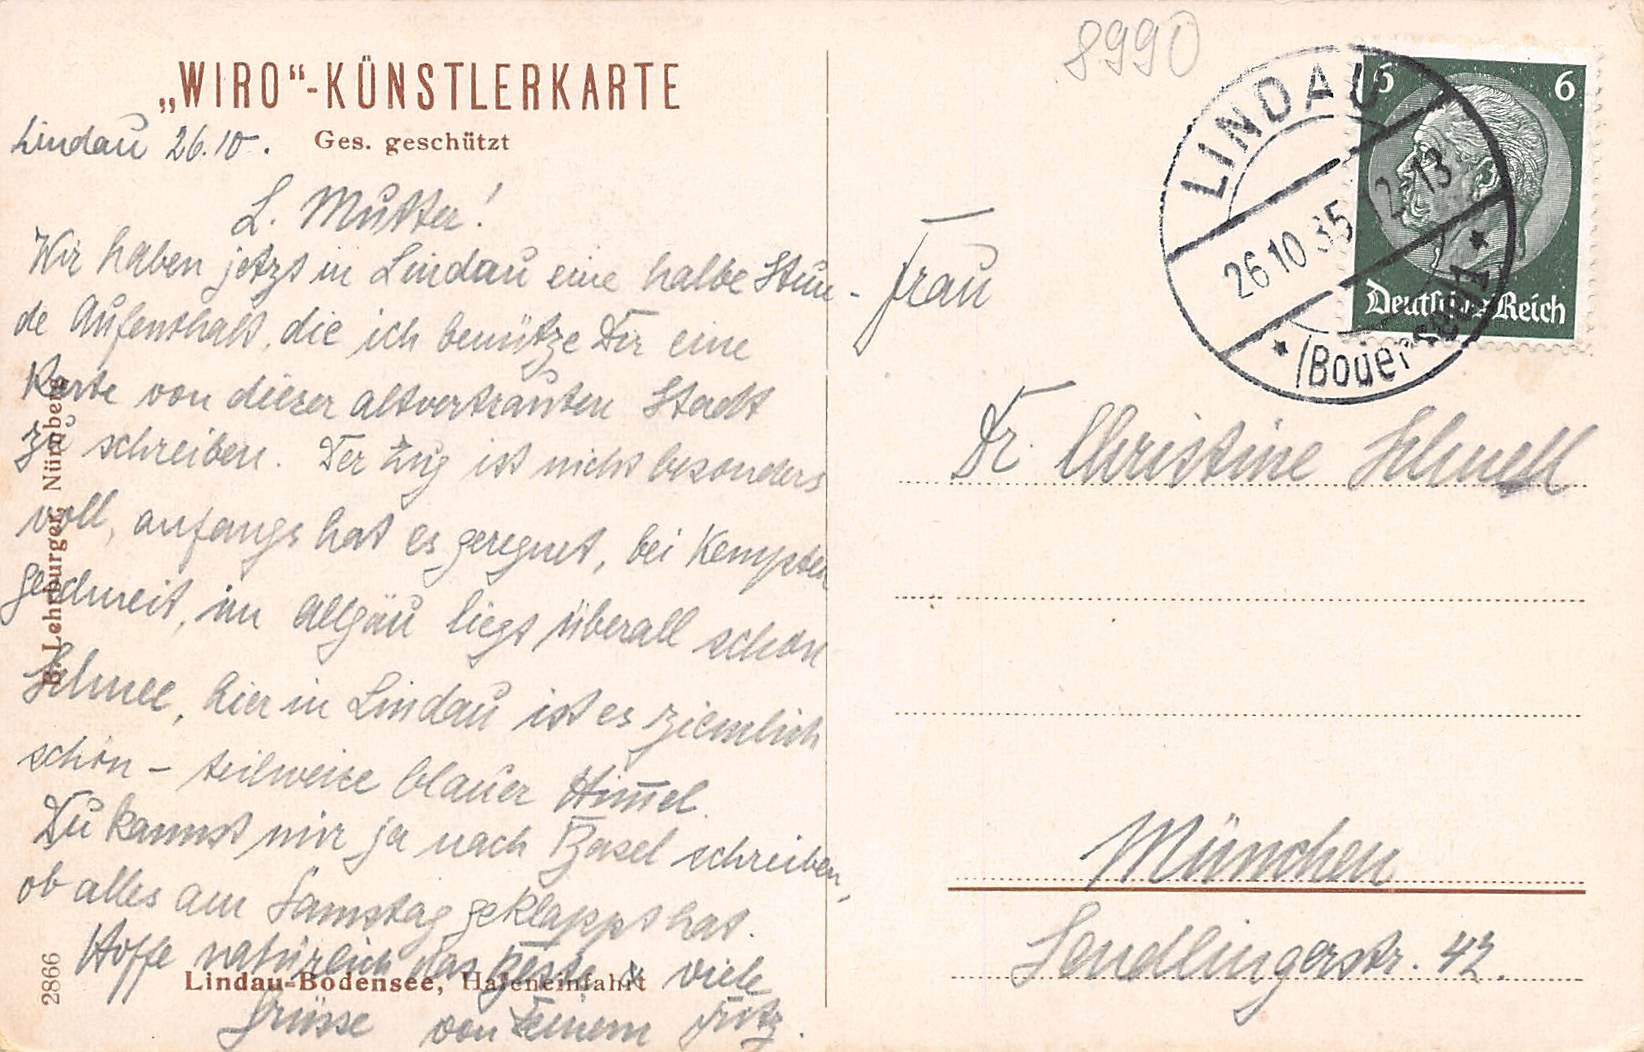 „WIRO“-KÜNSTLERKARTE
Ges. geschützt
Lindau 26.10.
L. Mutter!
Wir haben jetzt in Lindau eine halbe Stun-
de Aufenthalt, die ich benütze Dir eine
Karte von dieser altvertrauten Stadt
zu schreiben. Der Zug ist nicht besonders
voll, anfangs hat es geregnet, bei Kempten
geschneit, im Allgäu liegt überall schon
Schnee, hier in Lindau ist es ziemlich
schön – teilweise blauer Himmel.
Du kannst mir ja nach Basel schreiben,
ob alles am Samstag geklappt hat.
Hoffe natürlich das Beste & viele
Grüsse von Deinem Fritz.
Lindau-Bodensee, Hafeneinfahrt
B. Lehrburger, Nürnberg
2866
8990
LINDAU
26.10.35 12-13
(Bodensee)
6 6
Deutsches Reich
Frau
Dr. Christine Schnell
München
Sendlingerstr. 42.